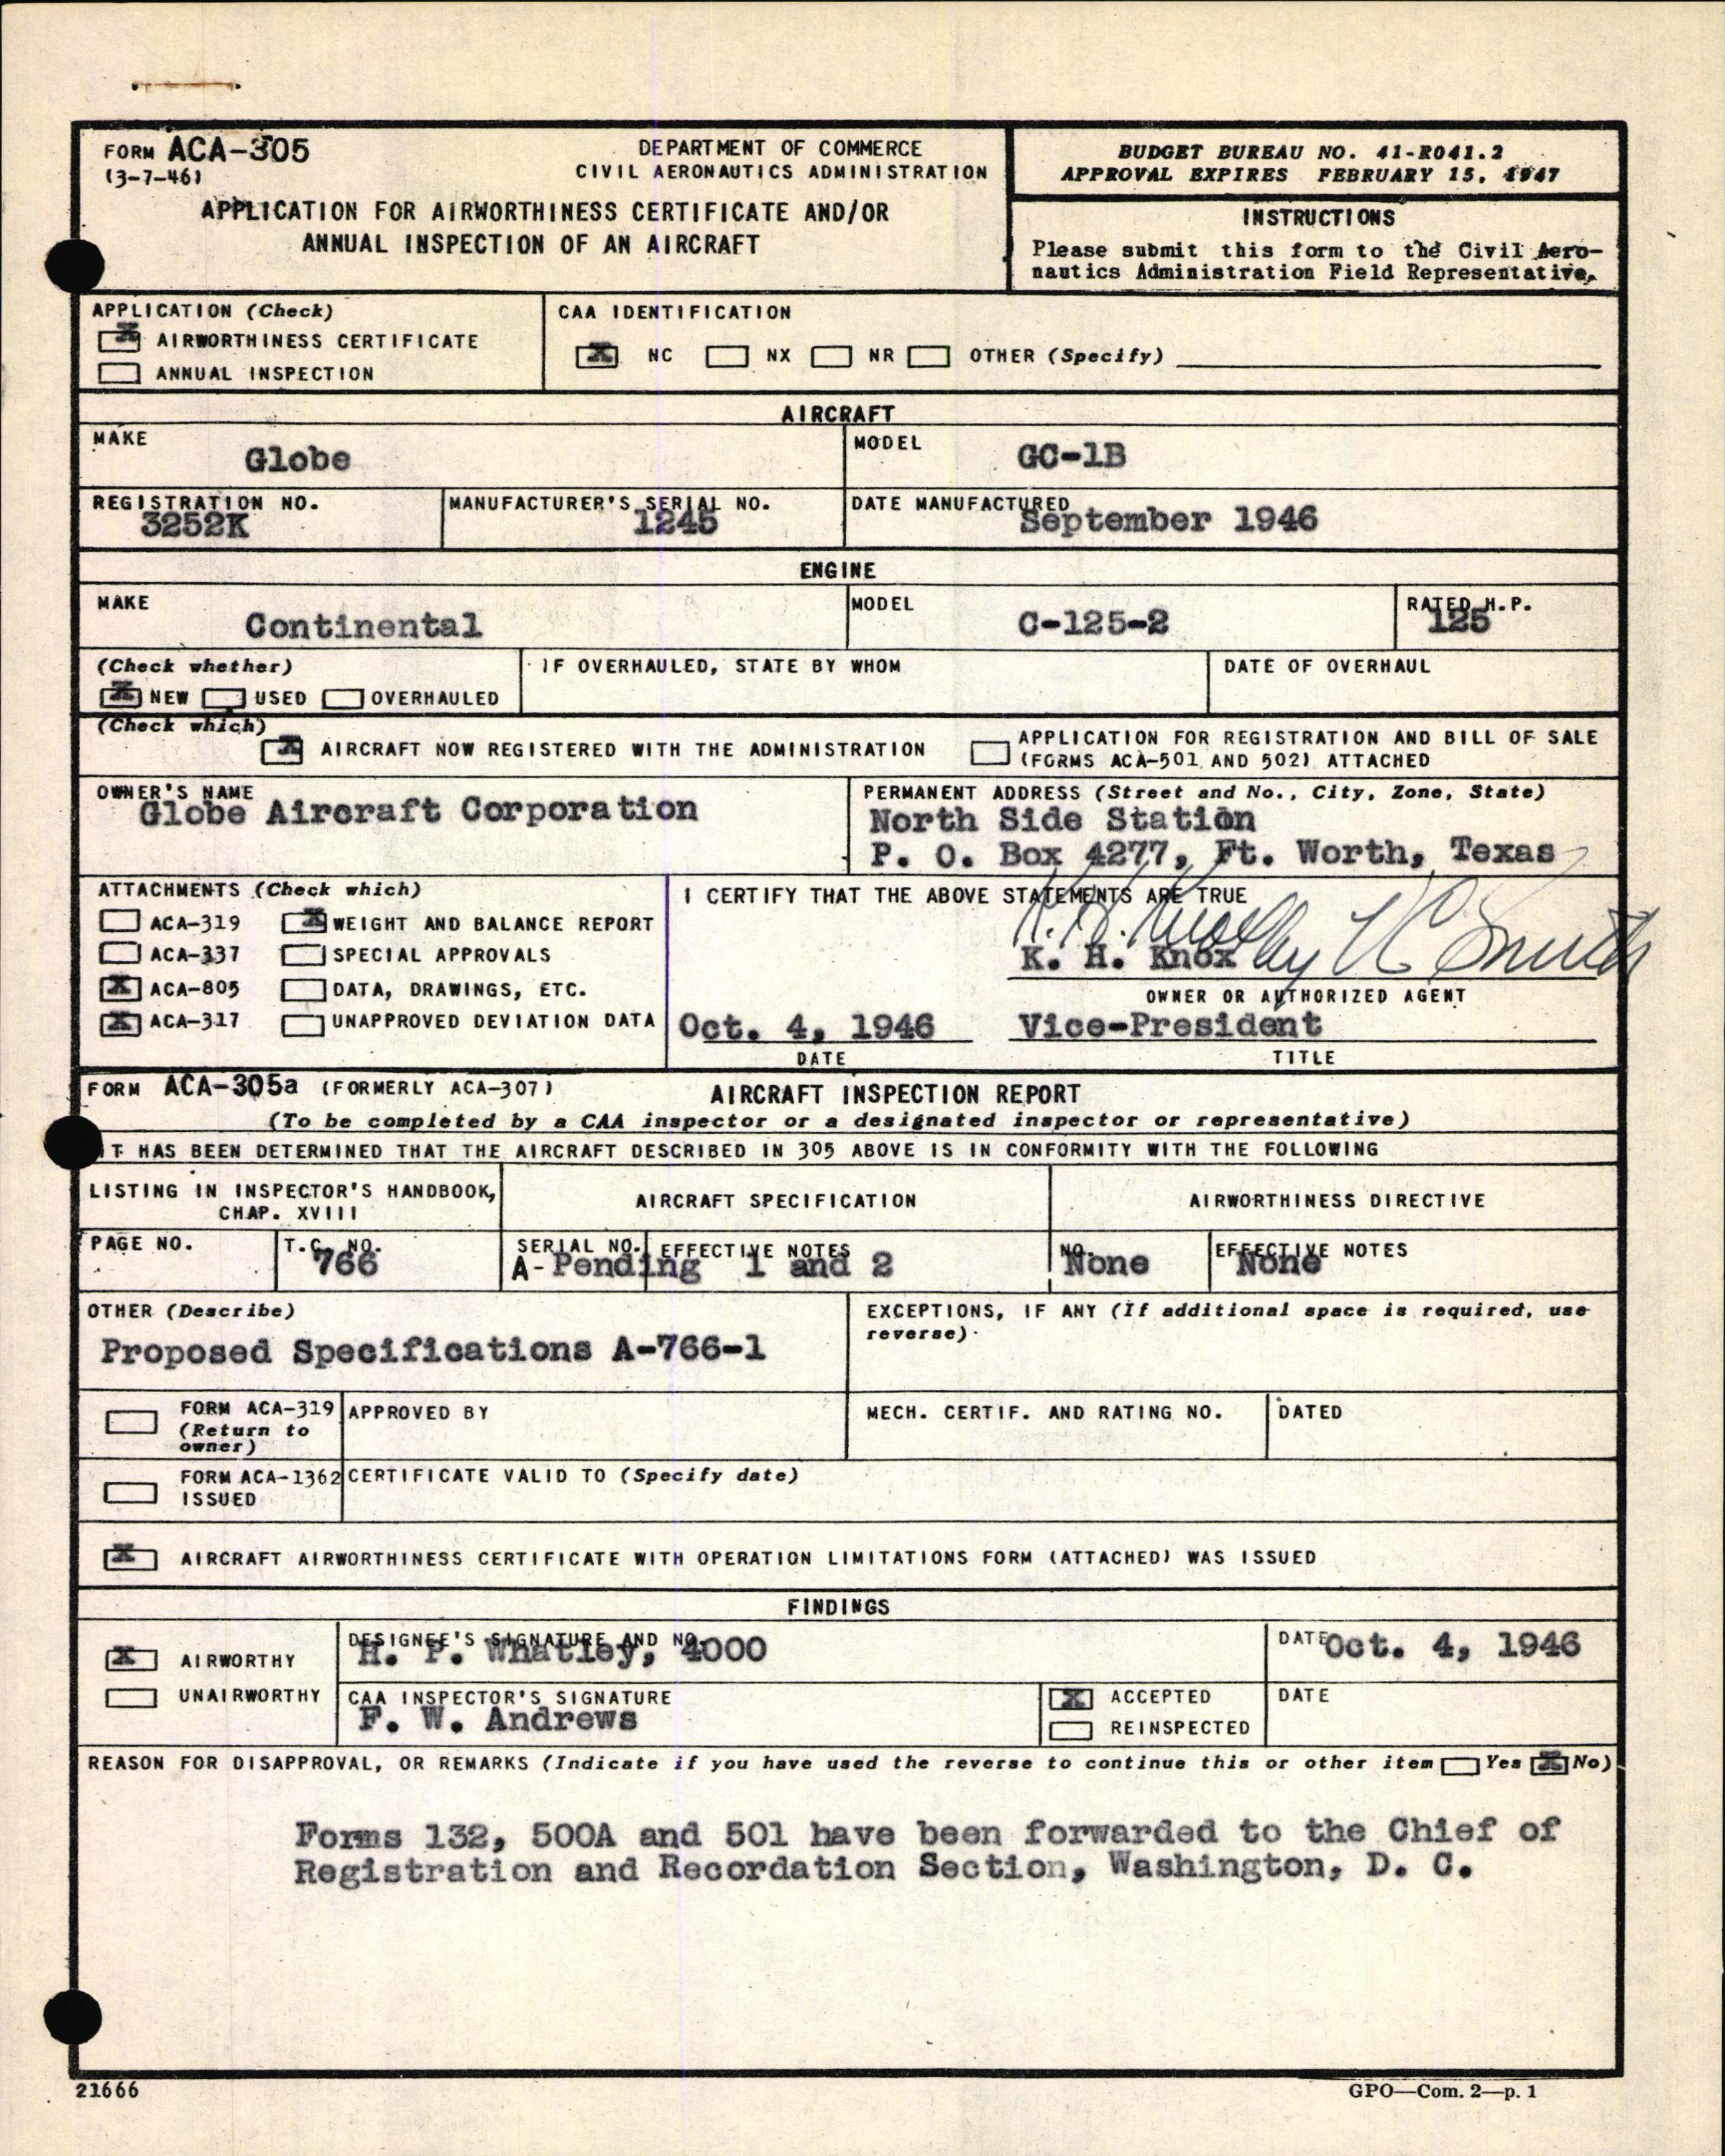 FORM ACA-305
(3-7-46)
DEPARTMENT OF COMMERCE
CIVIL AERONAUTICS ADMINISTRATION
APPLICATION FOR AIRWORTHINESS CERTIFICATE AND/OR
ANNUAL INSPECTION OF AN AIRCRAFT
BUDGET BUREAU NO. 41-R041.2
APPROVAL EXPIRES FEBRUARY 15, 1947
INSTRUCTIONS
Please submit this form to the Civil Aero-
nautics Administration Field Representative.
APPLICATION (Check)
X AIRWORTHINESS CERTIFICATE
ANNUAL INSPECTION
CAA IDENTIFICATION
X NC NX NR OTHER (Specify)
AIRCRAFT
MAKE
Globe
MODEL
GC-1B
REGISTRATION NO.
3252K
MANUFACTURER'S SERIAL NO.
1245
DATE MANUFACTURED
September 1946
ENGINE
MAKE
Continental
MODEL
C-125-2
RATED H.P.
125
(Check whether)
X NEW USED OVERHAULED
IF OVERHAULED, STATE BY WHOM
DATE OF OVERHAUL
(Check which)
X AIRCRAFT NOW REGISTERED WITH THE ADMINISTRATION
APPLICATION FOR REGISTRATION AND BILL OF SALE
(FORMS ACA-501 AND 502) ATTACHED
OWNER'S NAME
Globe Aircraft Corporation
PERMANENT ADDRESS (Street and No., City, Zone, State)
North Side Station
P. O. Box 4277, Ft. Worth, Texas
ATTACHMENTS (Check which)
ACA-319 X WEIGHT AND BALANCE REPORT
ACA-337 SPECIAL APPROVALS
X ACA-805 DATA, DRAWINGS, ETC.
X ACA-317 UNAPPROVED DEVIATION DATA
I CERTIFY THAT THE ABOVE STATEMENTS ARE TRUE
K. H. Knox by V C Smith
K. H. Knox
OWNER OR AUTHORIZED AGENT
Oct. 4, 1946 Vice-President
DATE TITLE
FORM ACA-305a (FORMERLY ACA-307)
AIRCRAFT INSPECTION REPORT
(To be completed by a CAA inspector or a designated inspector or representative)
IT HAS BEEN DETERMINED THAT THE AIRCRAFT DESCRIBED IN 305 ABOVE IS IN CONFORMITY WITH THE FOLLOWING
LISTING IN INSPECTOR'S HANDBOOK,
CHAP. XVIII
AIRCRAFT SPECIFICATION
AIRWORTHINESS DIRECTIVE
PAGE NO.
T.C. NO.
766
SERIAL NO. EFFECTIVE NOTES
A- Pending 1 and 2
NO.
None
EFFECTIVE NOTES
None
OTHER (Describe)
Proposed Specifications A-766-1
EXCEPTIONS, IF ANY (If additional space is required, use
reverse).
FORM ACA-319
(Return to
owner)
APPROVED BY
MECH. CERTIF. AND RATING NO.
DATED
FORM ACA-1362
ISSUED
CERTIFICATE VALID TO (Specify date)
X AIRCRAFT AIRWORTHINESS CERTIFICATE WITH OPERATION LIMITATIONS FORM (ATTACHED) WAS ISSUED
FINDINGS
X AIRWORTHY
UNAIRWORTHY
DESIGNEE'S SIGNATURE AND NO.
H. P. Whatley, 4000
DATE
Oct. 4, 1946
CAA INSPECTOR'S SIGNATURE
F. W. Andrews
X ACCEPTED
REINSPECTED
DATE
REASON FOR DISAPPROVAL, OR REMARKS (Indicate if you have used the reverse to continue this or other item Yes X No)
Forms 132, 500A and 501 have been forwarded to the Chief of
Registration and Recordation Section, Washington, D. C.
21666
GPO—Com. 2—p. 1